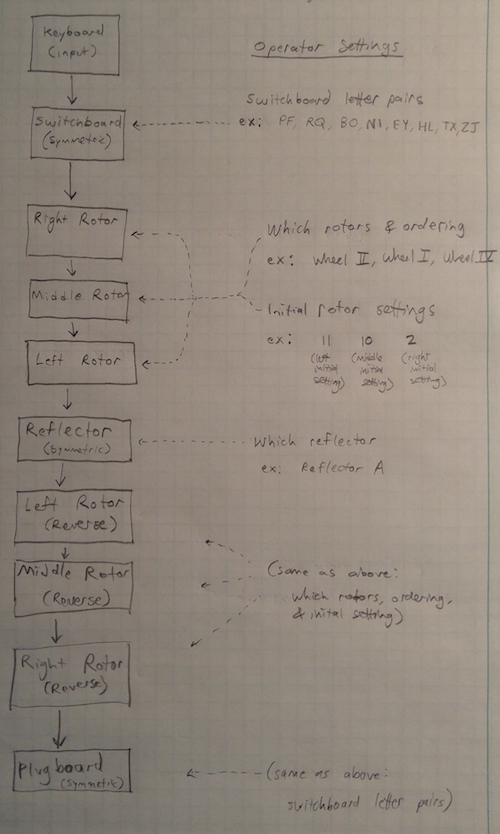 Keyboard
(input)
Operator Settings
Switchboard
(Symmetric)
Switchboard letter pairs
ex: PF, RQ, BO, NI, EY, HL, TX, ZJ
Right Rotor
Which rotors & ordering
ex: Wheel II, Wheel I, Wheel IV
Middle Rotor
Initial rotor settings
ex: 11 10 2
(left initial setting) (middle initial setting) (right initial setting)
Left Rotor
Reflector
(Symmetric)
Which reflector
ex: Reflector A
Left Rotor
(Reverse)
Middle Rotor
(Reverse)
(same as above:
which rotors, ordering,
& inital setting)
Right Rotor
(Reverse)
Plugboard
(symmetric)
(same as above:
switchboard letter pairs)